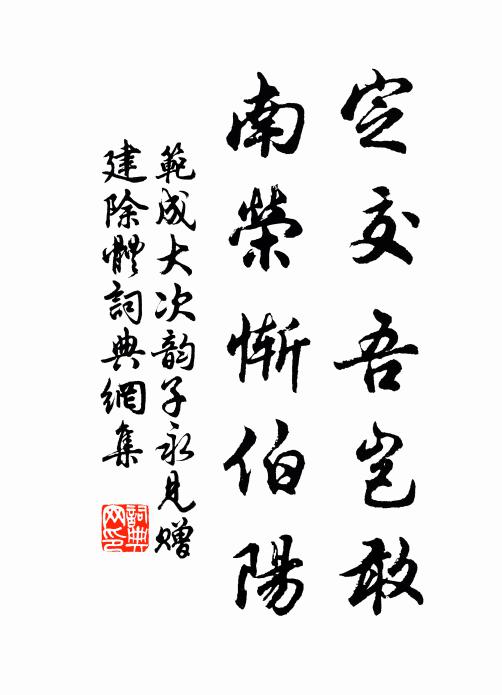 定交吾岂敢
南榮慚伯陽
範成大次韵子永見贈
建除體詞典網集
詞典
网印